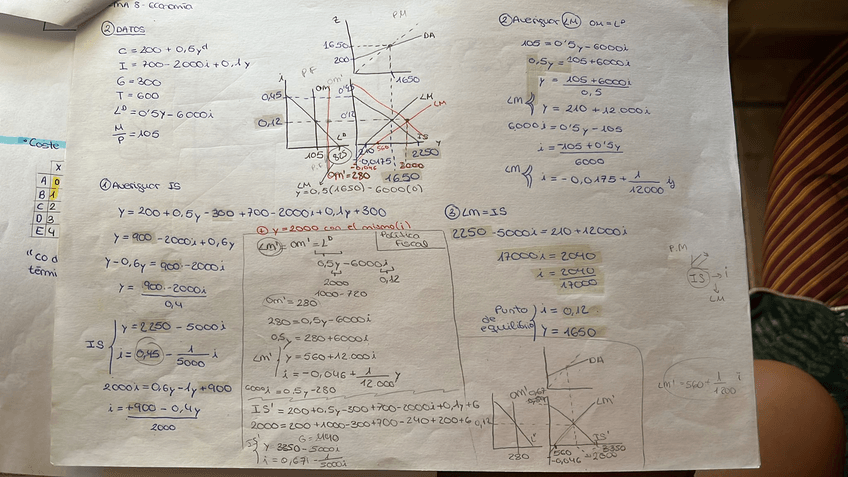 TEMA 8 - Economía
② DATOS
C = 200 + 0,5yd
I = 700 - 2000i + 0,1y
G = 300
T = 600
Lᴰ = 0'5y - 6000i
M/P = 105
① Averiguar IS
y = 200 + 0,5y - 300 + 700 - 2000i + 0,1y + 300
y = 900 - 2000i + 0,6y
y - 0,6y = 900 - 2000i
y = 900 - 2000i / 0,4
IS { y = 2250 - 5000i
i = 0,45 - 1/5000 i
2000i = 0,6y - 1y + 900
i = +900 - 0,4y / 2000
Z
P.M
DA
1650
200
1650
P.F
i
OM
OM'
0,45
0,12
Lᴰ
105
815
0'45
0'12
LM
LM
IS
y
210
560
2250
-0,0175
-0,046
2000
OM' = 280
1650
LM
y = 0,5(1650) - 6000(0)
④ y = 2000 con el mismo (i)
Política Fiscal
LM' = OM' = Lᴰ
0,5y - 6000i
2000
0,12
1000 - 720
OM' = 280
280 = 0,5y - 6000i
0,5y = 280 + 6000i
LM' { y = 560 + 12000i
i = -0,046 + 1/12000 y
6000i = 0,5y - 280
IS' = 200 + 0,5y - 300 + 700 - 2000i + 0,1y + G
2000 = 200 + 1000 - 300 + 700 - 240 + 200 + G
G = 440
IS' { y 3350 - 5000i
i = 0,671 - 1/5000 i
② Averiguar LM OM = Lᴰ
105 = 0'5y - 6000i
0,5y = 105 + 6000i
y = 105 + 6000i / 0,5
LM { y = 210 + 12000i
6000i = 0'5y - 105
i = -105 + 0'5y / 6000
LM { i = -0,0175 + 1/12000 y
③ LM = IS
2250 - 5000i = 210 + 12000i
17000i = 2040
i = 2040/17000
Punto de equilibrio { i = 0,12
y = 1650
P.M
IS → i
↓
LM
LM' = 560 + 1/1200 i
DA
OM'
0,12
Lᴰ
280
0,67
LM'
IS'
560
-0,046
2000
3350
• Coste
X
A 0
B 1
C 2
D 3
E 4
"co d
térmi